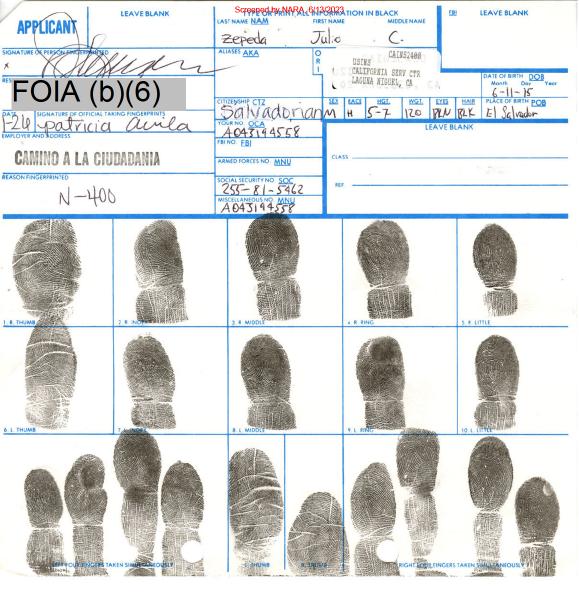 Screened by NARA, 6/13/2023
APPLICANT
LEAVE BLANK
TYPE OR PRINT ALL INFORMATION IN BLACK
LAST NAME NAM FIRST NAME MIDDLE NAME
FBI
LEAVE BLANK
Zepeda Julio C.
SIGNATURE OF PERSON FINGERPRINTED
ALIASES AKA
O
R
I
CAINS2400
USINS
CALIFORNIA SERV CTR
LAGUNA NIGUEL, CA
x
FOIA (b)(6)
DATE OF BIRTH DOB
Month Day Year
6-11-15
CITIZENSHIP CTZ
SEX RACE HGT. WGT. EYES HAIR PLACE OF BIRTH POB
Salvadorian M H 5-7 120 BLK El Salvador
DATE SIGNATURE OF OFFICIAL TAKING FINGERPRINTS
1-26 patricia avila
YOUR NO. OCA
A043194558
LEAVE BLANK
EMPLOYER AND ADDRESS
CAMINO A LA CIUDADANIA
FBI NO. FBI
CLASS
ARMED FORCES NO. MNU
REASON FINGERPRINTED
N-400
SOCIAL SECURITY NO. SOC
255-81-5462
REF.
MISCELLANEOUS NO. MNU
A043194558
1. R. THUMB 2. R. INDEX 3. R. MIDDLE 4. R. RING 5. R. LITTLE
6. L. THUMB 7. L. INDEX 8. L. MIDDLE 9. L. RING 10. L. LITTLE
LEFT FOUR FINGERS TAKEN SIMULTANEOUSLY L. THUMB R. THUMB RIGHT FOUR FINGERS TAKEN SIMULTANEOUSLY